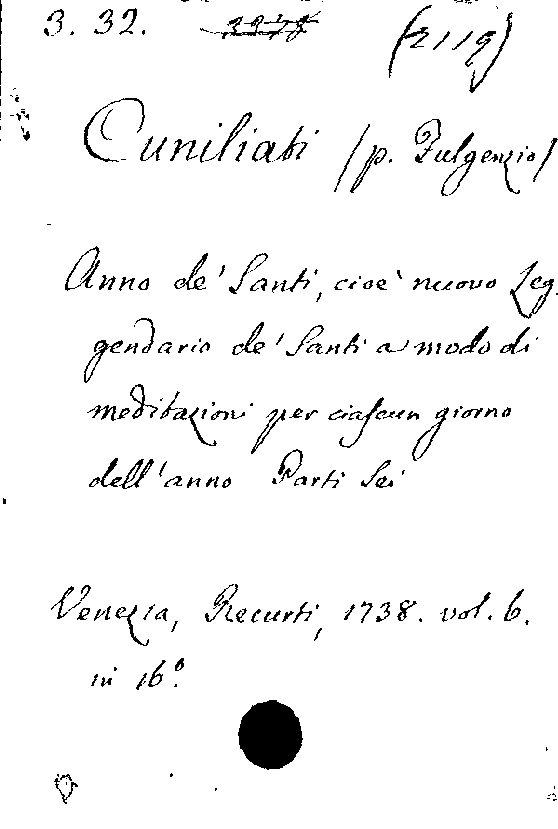 3. 32. (2119)
Cuniliati (p. Fulgenzio)
Anno de' Santi, cioè nuovo Leg.
gendario de' Santi a modo di
meditazioni per ciascun giorno
dell'anno Parti Sei
Venezia, Recurti, 1738. vol. 6.
in 16º.